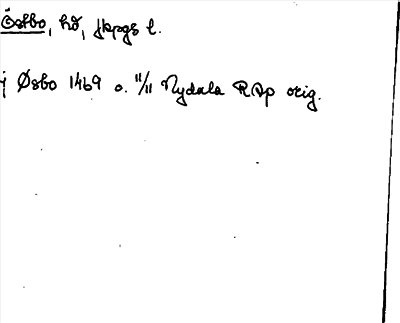 Östbo, hd, jkpgs l.
j Øsbo 1469 o. 11/11 Nydala RAp orig.